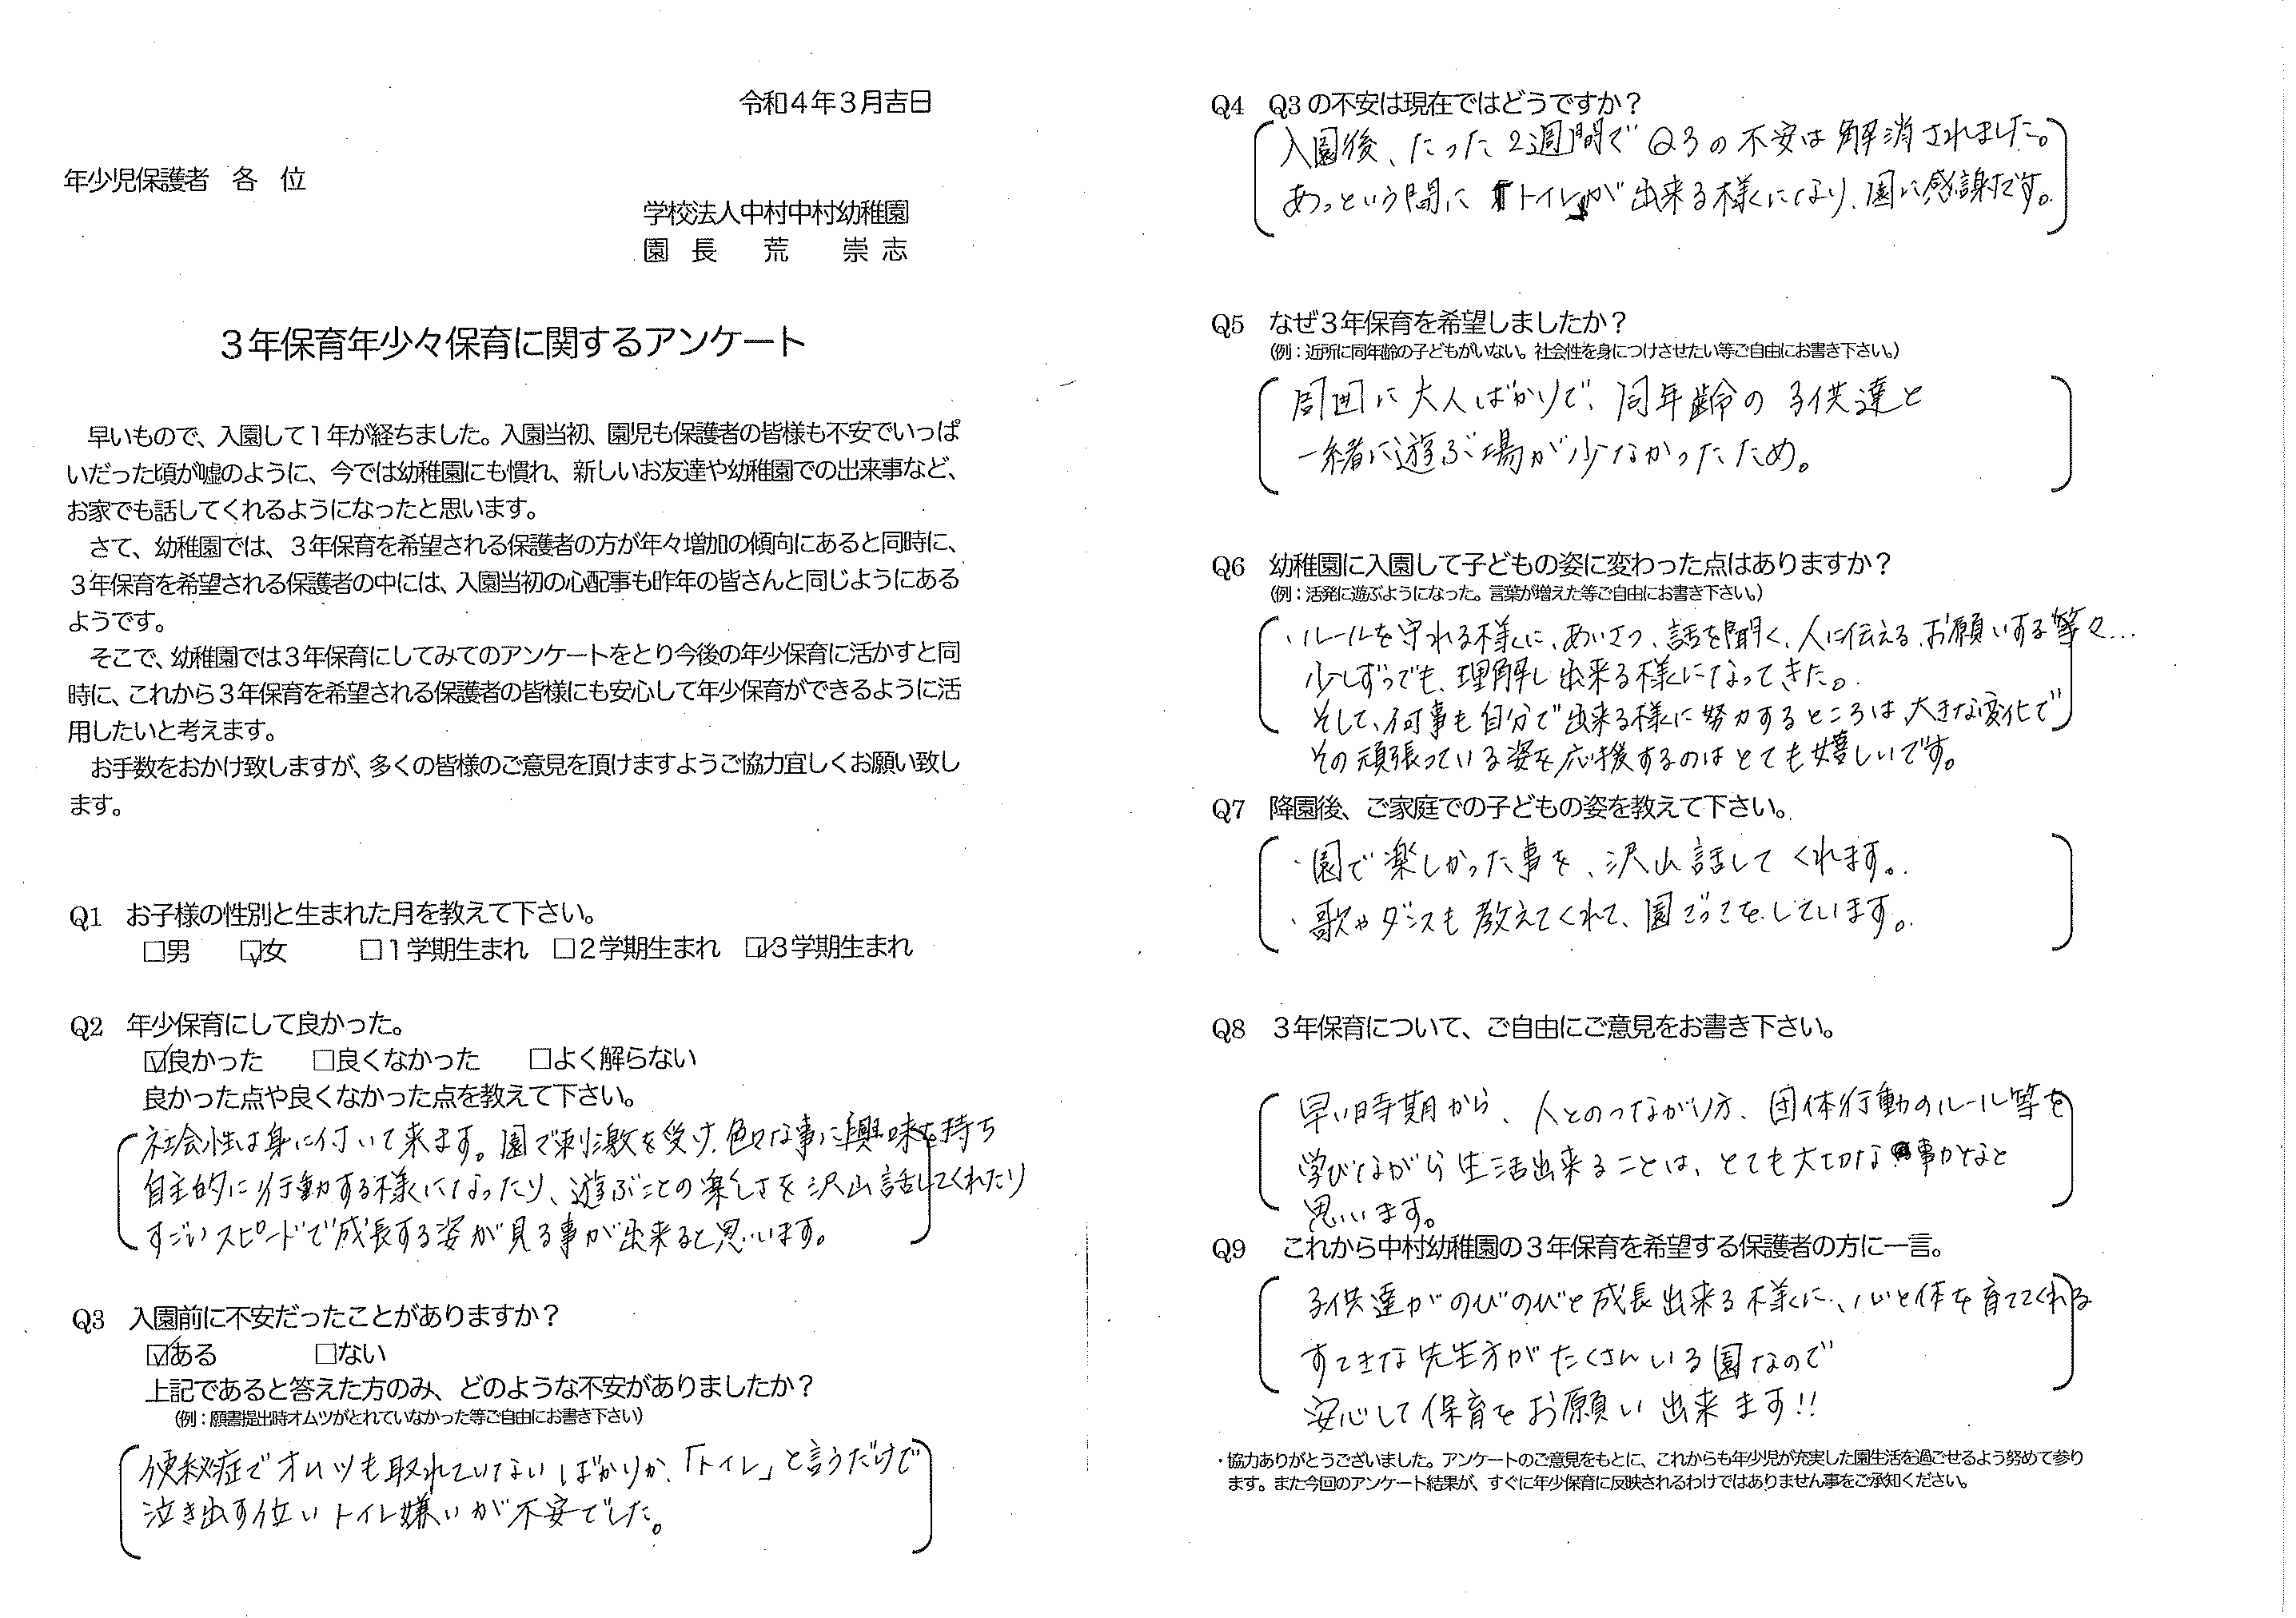 令和４年３月吉日
年少児保護者　各　位
学校法人中村中村幼稚園
園　長　　荒　　崇　志
３年保育年少々保育に関するアンケート
早いもので、入園して１年が経ちました。入園当初、園児も保護者の皆様も不安でいっぱ
いだった頃が嘘のように、今では幼稚園にも慣れ、新しいお友達や幼稚園での出来事など、
お家でも話してくれるようになったと思います。
さて、幼稚園では、３年保育を希望される保護者の方が年々増加の傾向にあると同時に、
３年保育を希望される保護者の中には、入園当初の心配事も昨年の皆さんと同じようにある
ようです。
そこで、幼稚園では３年保育にしてみてのアンケートをとり今後の年少保育に活かすと同
時に、これから３年保育を希望される保護者の皆様にも安心して年少保育ができるように活
用したいと考えます。
お手数をおかけ致しますが、多くの皆様のご意見を頂けますようご協力宜しくお願い致し
ます。
Q1　お子様の性別と生まれた月を教えて下さい。
□男　☑女　□１学期生まれ　□２学期生まれ　☑３学期生まれ
Q2　年少保育にして良かった。
☑良かった　□良くなかった　□よく解らない
良かった点や良くなかった点を教えて下さい。
社会性は身に付いて来ます。園で刺激を受け、色々な事に興味を持ち
自主的に行動する様になったり、遊ぶことの楽しさを沢山話してくれたり
すごいスピードで成長する姿が見る事が出来ると思います。
Q3　入園前に不安だったことがありますか？
☑ある　□ない
上記であると答えた方のみ、どのような不安がありましたか？
（例：願書提出時オムツがとれていなかった等ご自由にお書き下さい）
便秘症でオムツも取れていないばかりか、「トイレ」と言うだけで
泣き出す位いトイレ嫌いが不安でした。
Q4　Q3の不安は現在ではどうですか？
入園後、たった2週間でQ3の不安は解消されました。
あっという間にトイレが出来る様になり、園に感謝です。
Q5　なぜ３年保育を希望しましたか？
（例：近所に同年齢の子どもがいない。社会性を身につけさせたい等ご自由にお書き下さい。）
周囲に大人ばかりで、同年齢の子供達と
一緒に遊ぶ場が少なかったため。
Q6　幼稚園に入園して子どもの姿に変わった点はありますか？
（例：活発に遊ぶようになった。言葉が増えた等ご自由にお書き下さい。）
・ルールを守れる様に、あいさつ、話を聞く、人に伝える、お願いする等々…
少しずつでも、理解し出来る様になってきた。
そして、何事も自分で出来る様に努力するところは大きな変化で
その頑張っている姿を応援するのはとても嬉しいです。
Q7　降園後、ご家庭での子どもの姿を教えて下さい。
・園で楽しかった事を、沢山話してくれます。
・歌やダンスも教えてくれて、園ごっこをしています。
Q8　３年保育について、ご自由にご意見をお書き下さい。
早い時期から、人とのつながり方、団体行動のルール等を
学びながら生活出来ることは、とても大切な事かなと
思います。
Q9　これから中村幼稚園の３年保育を希望する保護者の方に一言。
子供達がのびのびと成長出来る様に、心と体を育ててくれる
すてきな先生方がたくさんいる園なので
安心して保育をお願い出来ます!!
・協力ありがとうございました。アンケートのご意見をもとに、これからも年少児が充実した園生活を過ごせるよう努めて参り
ます。また今回のアンケート結果が、すぐに年少保育に反映されるわけではありません事をご承知ください。